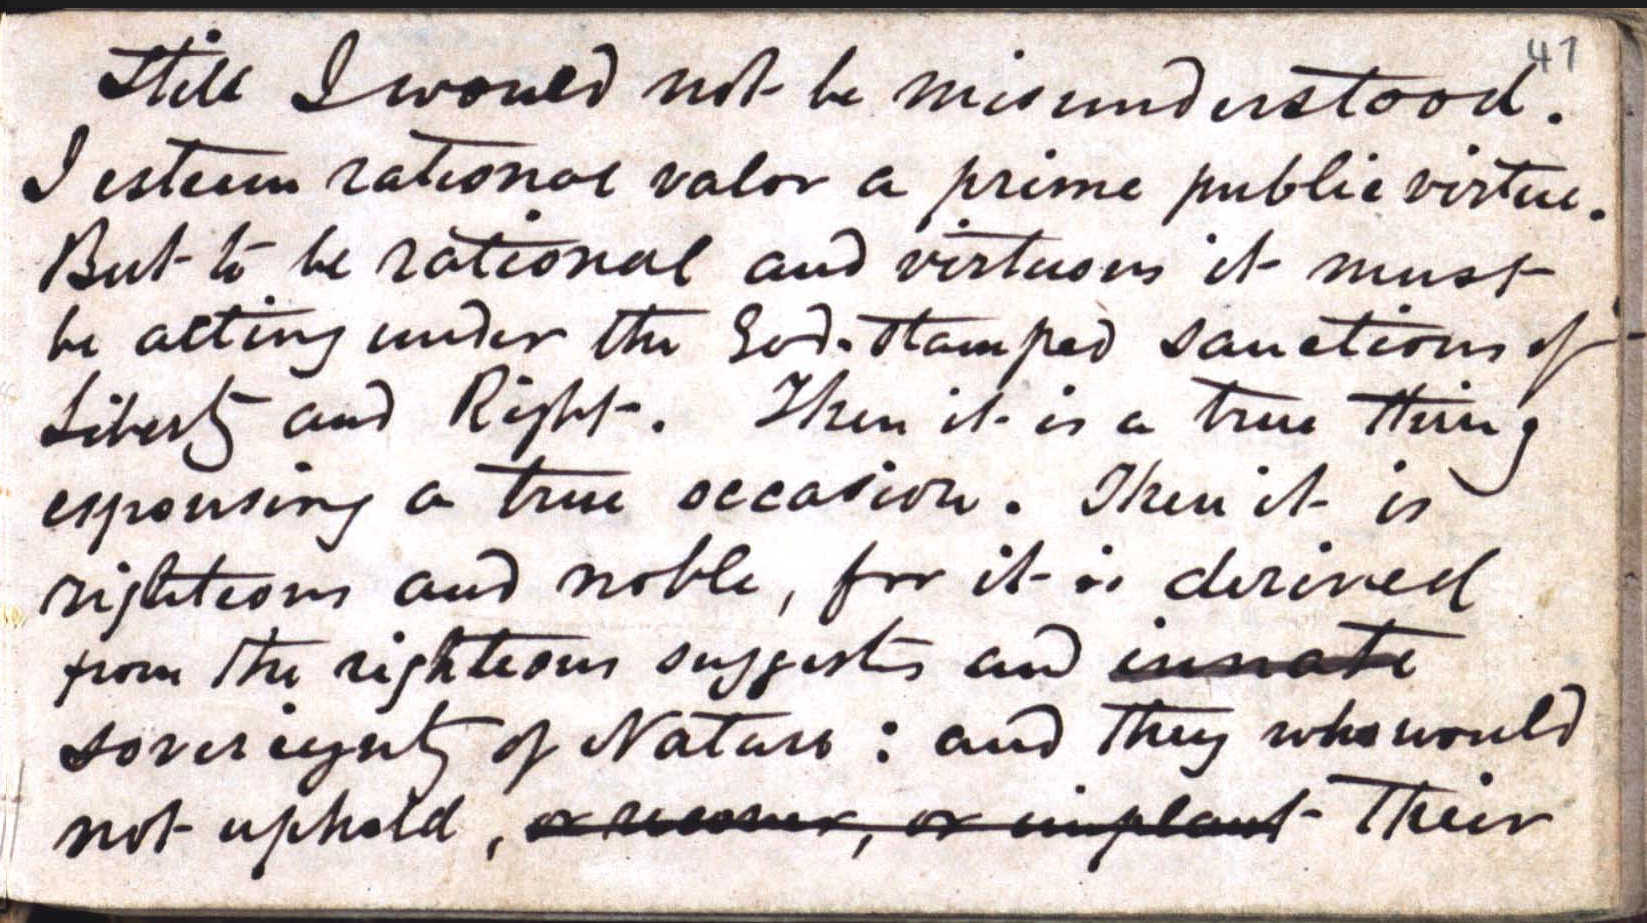 41
Still I would not be misunderstood.
I esteem rational valor a prime public virtue.
But to be rational and virtuous it must
be acting under the God-stamped sanctions of
Liberty and Right. Then it is a true thing
espousing a true occasion. Then it is
righteous and noble, for it is derived
from the righteous suggests and innate
sovereignty of Nature: and they who would
not uphold, or recover, or implant their